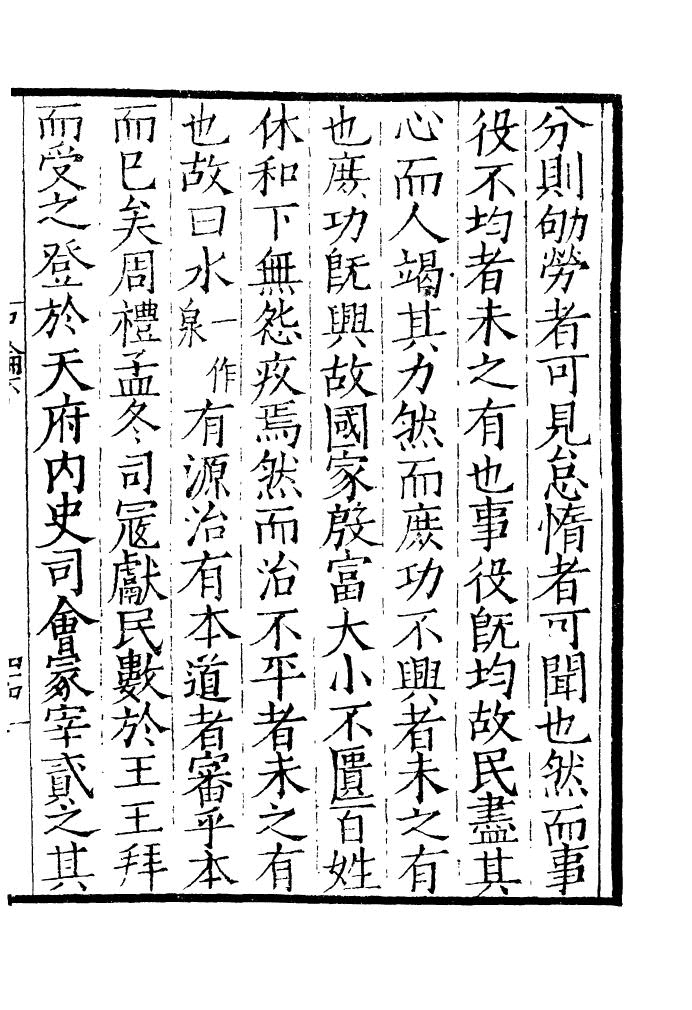 分則劬勞者可見怠惰者可聞也然而事
役不均者未之有也事役旣均故民盡其
心而人竭其力然而庶功不興者未之有
也庶功旣興故國家殷富大小不匱百姓
休和下無怨疚焉然而治不平者未之有
也故曰水一作泉有源治有本道者審乎本
而已矣周禮孟冬司寇獻民數於王王拜
而受之登於天府內史司會冢宰貳之其